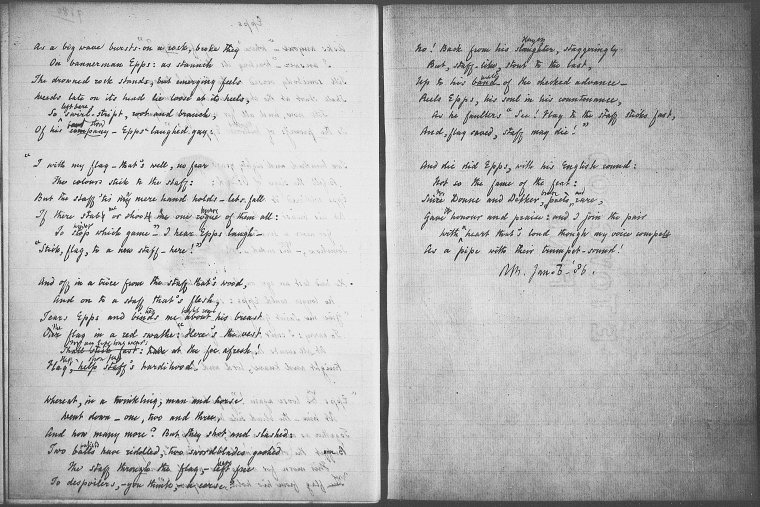 Epps.
As a big wave bursts on a rock, broke they
On bannerman Epps: as staunch
The drowned rock stands, but emerging feels
Weeds late on its head lie loose at its heels,
So left bare, swirl-stript, root and branch,
Of his company – Epps laughed gay:
"I with my flag – that's well, no fear
The colours stick to the staff:
But the staff his mere hand holds – let fall
If there stab or shoot me one rogue of them all:
To stop which game" I hear Epps laugh –
"Stick, flag, to a new staff – here!"
And off in a trice from the staff that's wood,
And on to a staff that's flesh,
Tears Epps and binds about his breast
The flag in a red swathe: "Here's the vest
at the foe afresh!
Flag, help staff's hardihood."
Whereat, in a twinkling, man and horse
Went down – one, two and three,
And how many more? But they shot and slashed:
Two balls have riddled, two swordblades gashed
The staff through the flag, – left free
To despoilers, – you think, – a corse?
No! Back from his slaughter, staggeringly
But, staff-like, stout to the last,
Up to his of the checked advance –
Reels Epps, his soul in his countenance,
As he faulters "See! Flag to the staff sticks fast,
And, flag saved, staff may die!"
And die did Epps, with his English round:
Not so the fame of the feat:
Donne and Dekker, poets, rare,
Gave honour and praise: and I join the pair
with heart that's loud though my voice compete
As a pipe with their trumpet-sound!
RB. Jan. 6. '86.